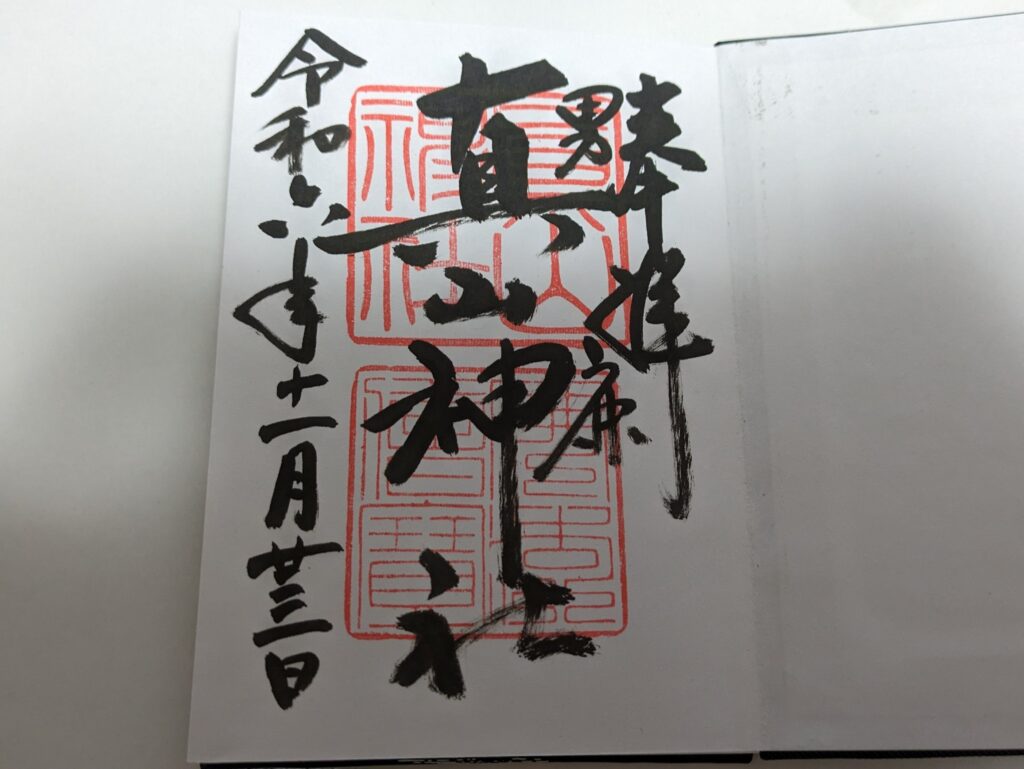 奉拝
男鹿
真山神社
令和六年十一月廿三日
真山神社